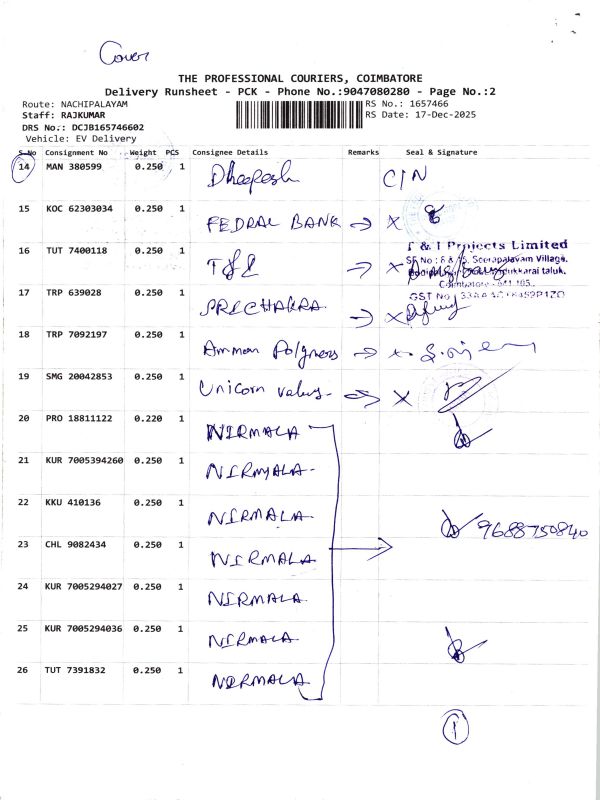 Cover
THE PROFESSIONAL COURIERS, COIMBATORE
Delivery Runsheet - PCK - Phone No.:9047080280 - Page No.:2
Route: NACHIPALAYAM
RS No.: 1657466
Staff: RAJKUMAR
RS Date: 17-Dec-2025
DRS No.: DCJB165746602
Vehicle: EV Delivery
S.No Consignment No Weight PCS Consignee Details Remarks Seal & Signature
14 MAN 380599 0.250 1 Dheepesh C/N
15 KOC 62303034 0.250 1 FEDRAL BANK → X
16 TUT 7400118 0.250 1 T&I → X
T & I Projects Limited
Seerapalayam Village,
17 TRP 639028 0.250 1 SRI CHAKRA → X
18 TRP 7092197 0.250 1 Amman Polymers → x
19 SMG 20042853 0.250 1 Unicorn valves → X
20 PRO 18811122 0.220 1 NIRMALA
21 KUR 7005394260 0.250 1 NIRMALA
22 KKU 410136 0.250 1 NIRMALA 9688750840
23 CHL 9082434 0.250 1 NIRMALA →
24 KUR 7005294027 0.250 1 NIRMALA
25 KUR 7005294036 0.250 1 NIRMALA
26 TUT 7391832 0.250 1 NIRMALA
1